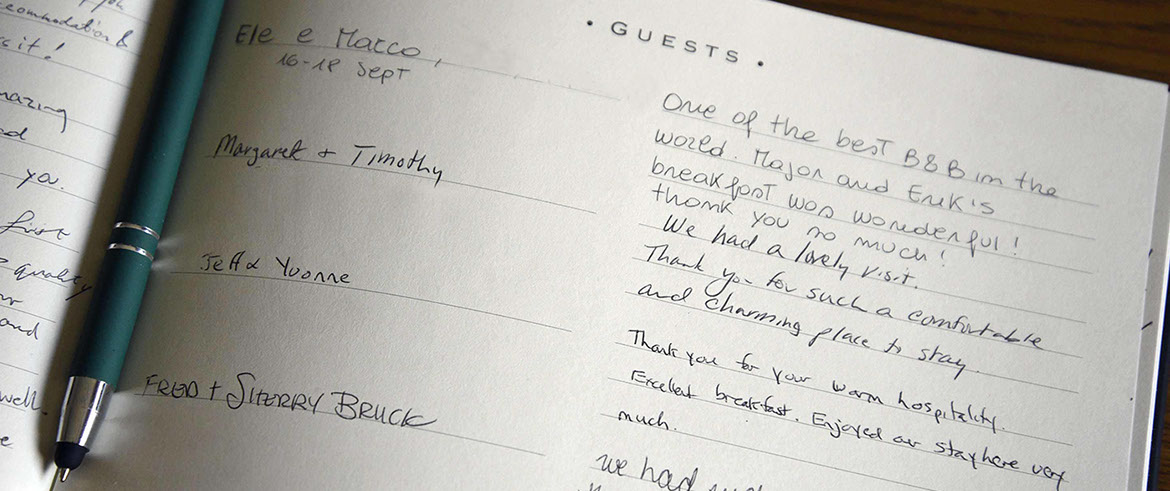 accommodation &
it!
amazing
you.
first
quality
and
well.
Ele e Marco,
16-18 Sept
Margaret + Timothy
Jeff & Yvonne
FRED + SHERRY BRUCK
• GUESTS •
One of the best B&B in the
world. Major and Erik's
breakfast was wonderful!
thank you so much!
We had a lovely visit.
Thank you for such a comfortable
and charming place to stay.
Thank you for your warm hospitality.
Excellent breakfast. Enjoyed our stay here very
much.
we had